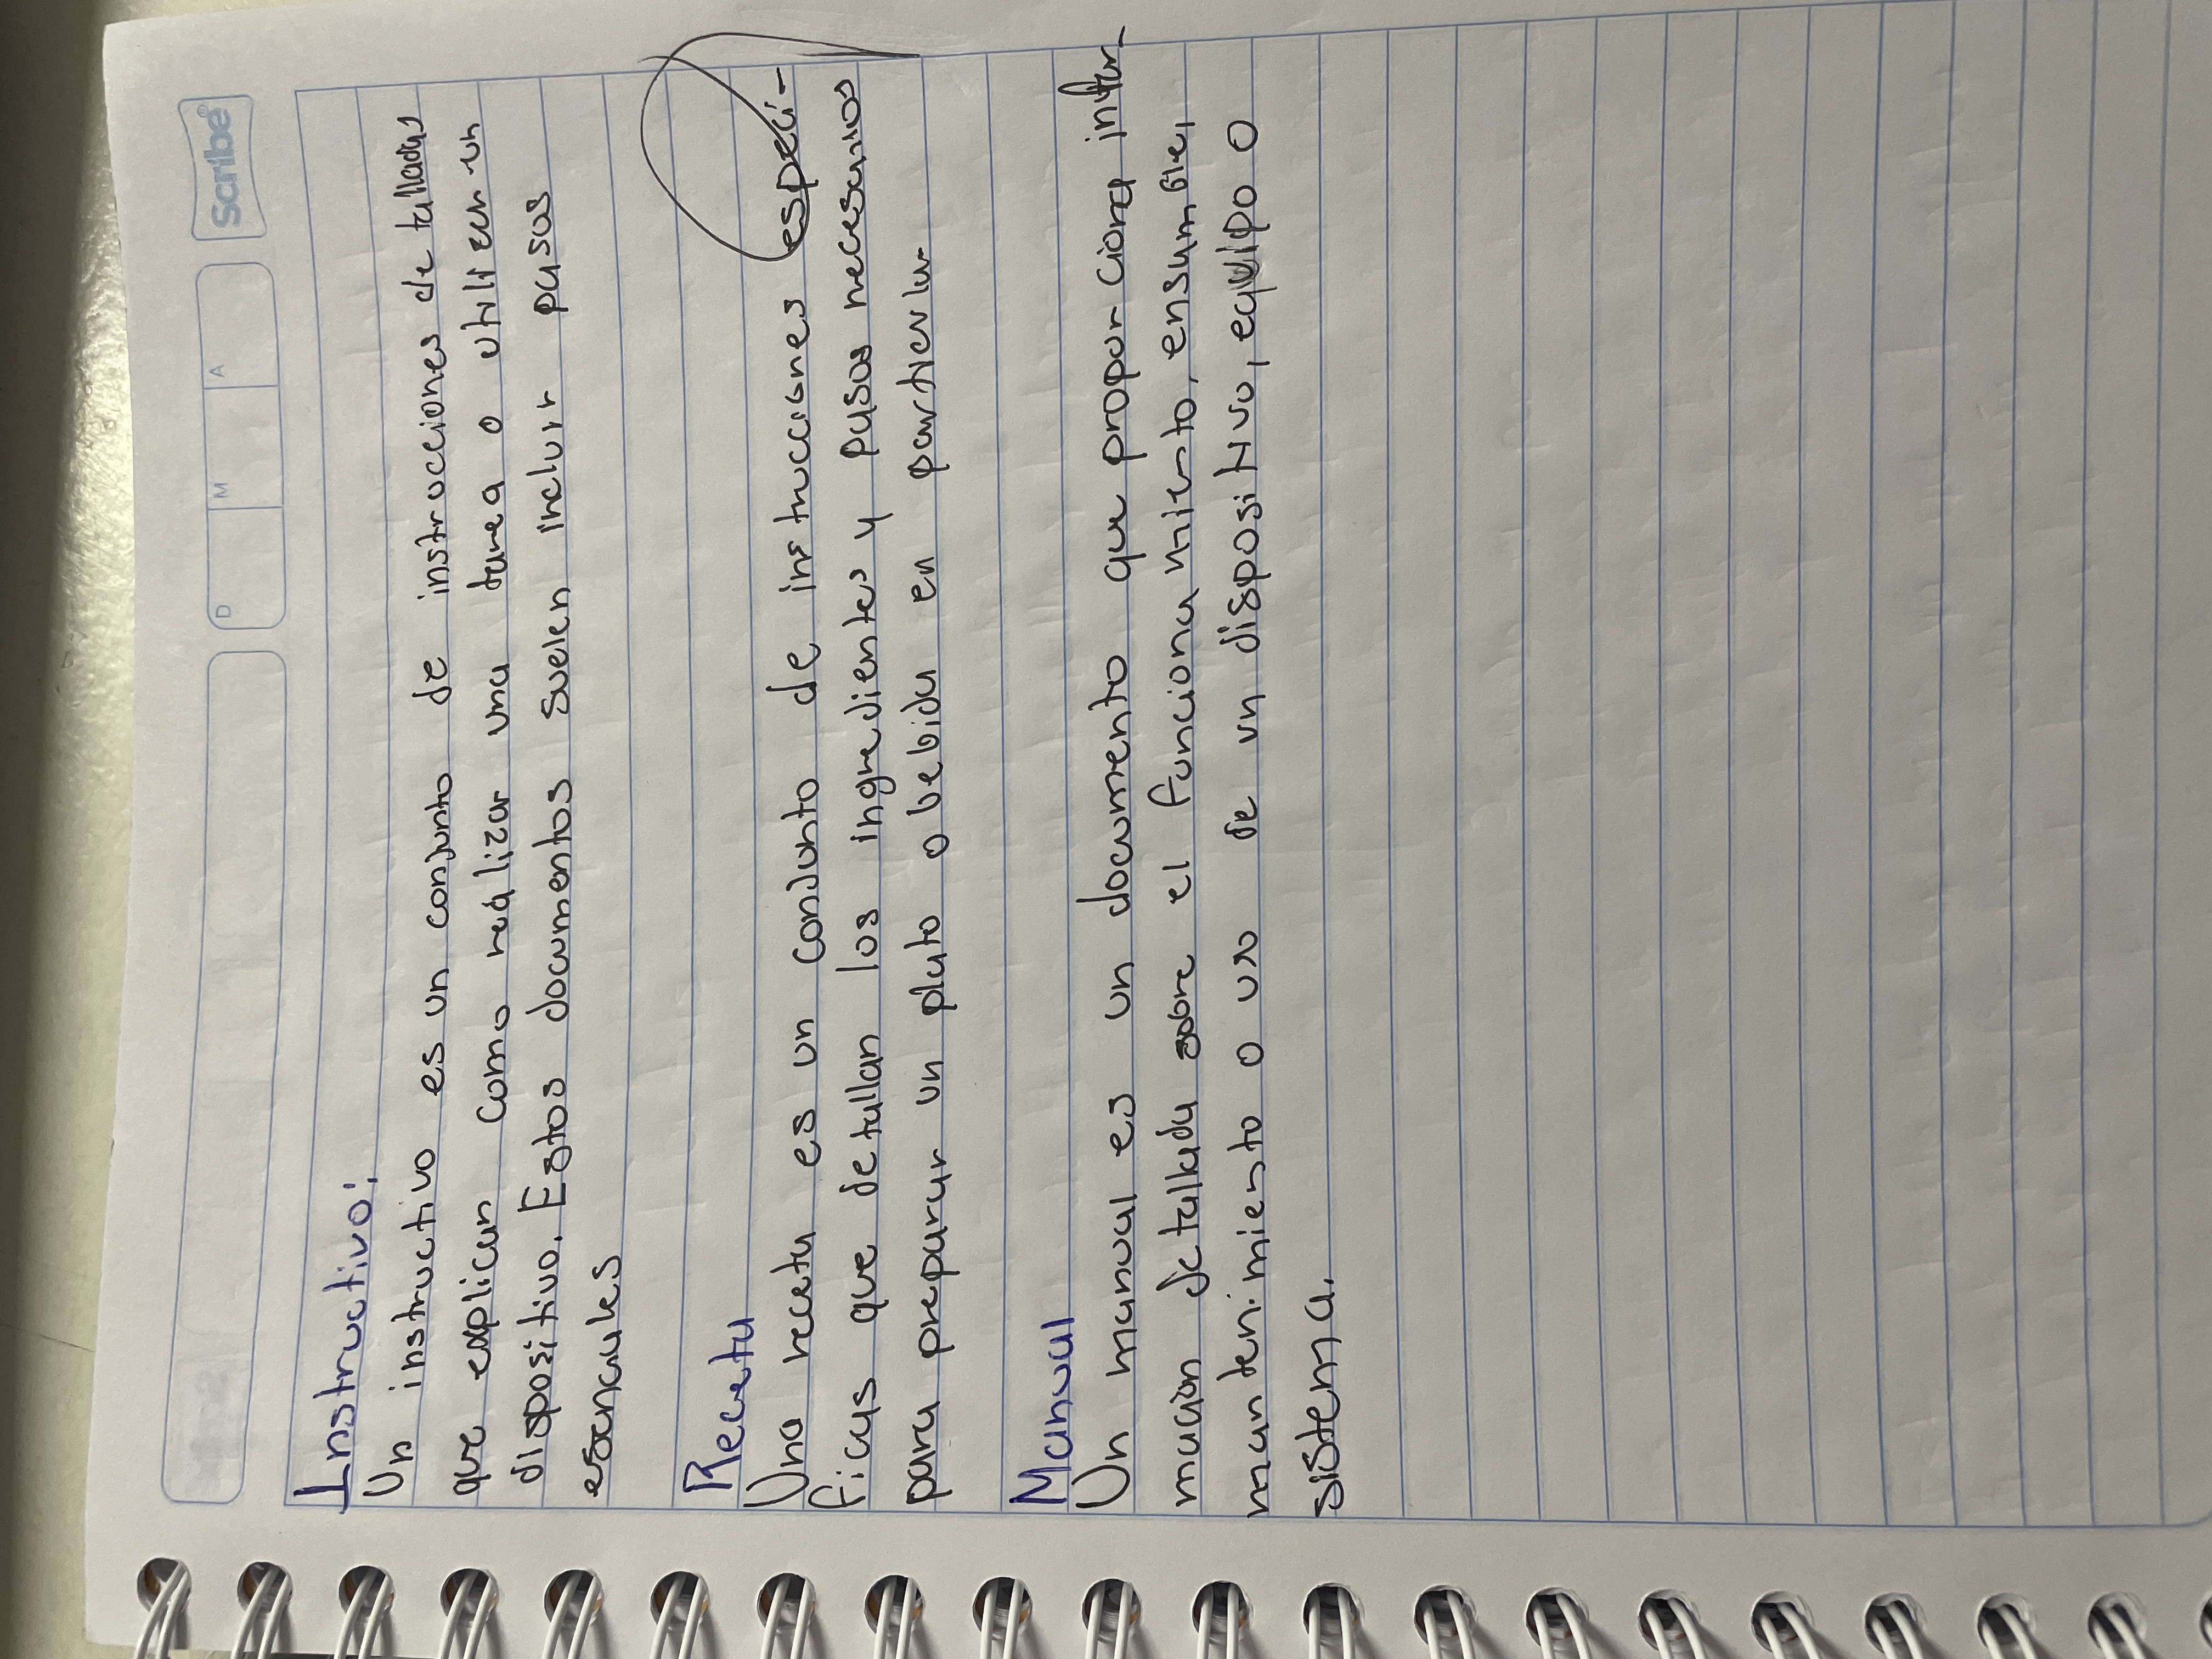 Scribe®
D M A
Instructivo:
Un instructivo es un conjunto de instrucciones detalladas
que explican como realizar una tarea o utilizar un
dispositivo. Estos documentos suelen incluir pasos
esenciales
Receta
Una receta es un conjunto de instrucciones especi-
ficas que detallan los ingredientes y pasos necesarios
para preparar un plato o bebida en particular
Manual
Un manual es un documento que proporciona infor-
macion detallada sobre el funcionamiento, ensamble,
mantenimiento o uso de un dispositivo, equipo o
sistema.